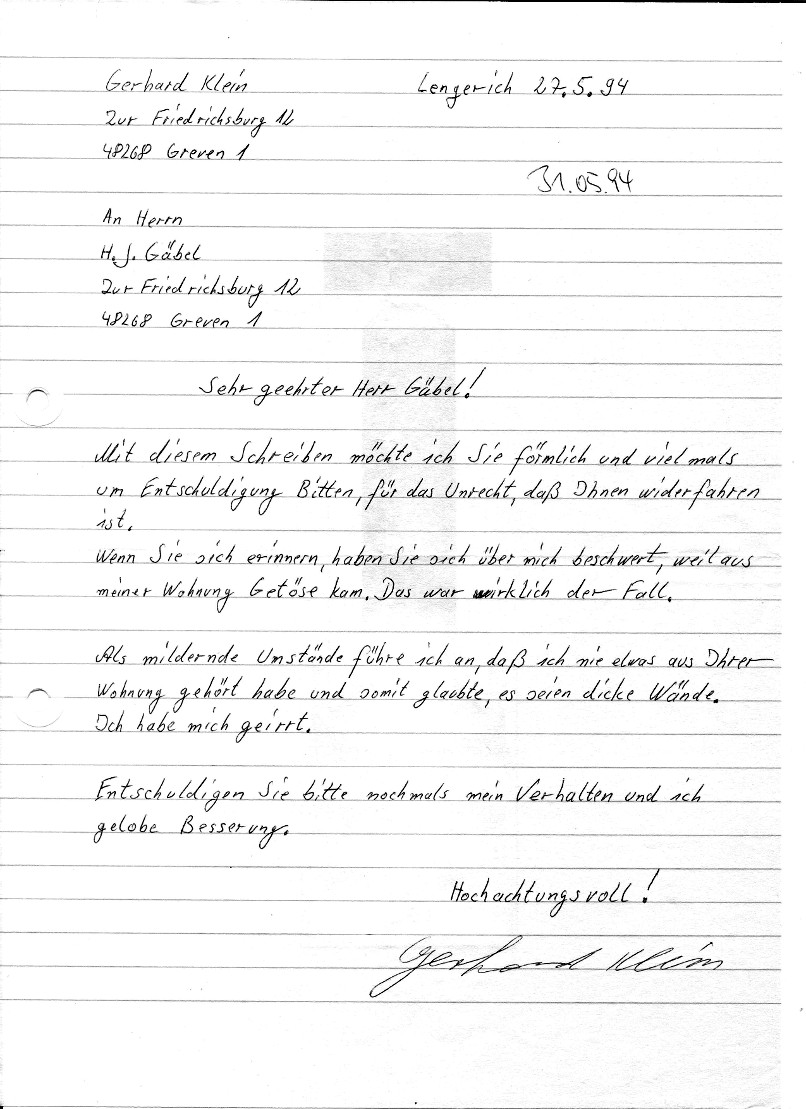 Gerhard Klein
Lengerich 27.5.94
Zur Friedrichsburg 12
48268 Greven 1
31.05.94
An Herrn
H. J. Gäbel
Zur Friedrichsburg 12
48268 Greven 1
Sehr geehrter Herr Gäbel!
Mit diesem Schreiben möchte ich Sie förmlich und vielmals
um Entschuldigung Bitten, für das Unrecht, daß Ihnen widerfahren
ist.
Wenn Sie sich erinnern, haben Sie sich über mich beschwert, weil aus
meiner Wohnung Getöse kam. Das war wirklich der Fall.
Als mildernde Umstände führe ich an, daß ich nie etwas aus Ihrer
Wohnung gehört habe und somit glaubte, es seien dicke Wände.
Ich habe mich geirrt.
Entschuldigen Sie bitte nochmals mein Verhalten und ich
gelobe Besserung.
Hochachtungsvoll!
Gerhard Klein